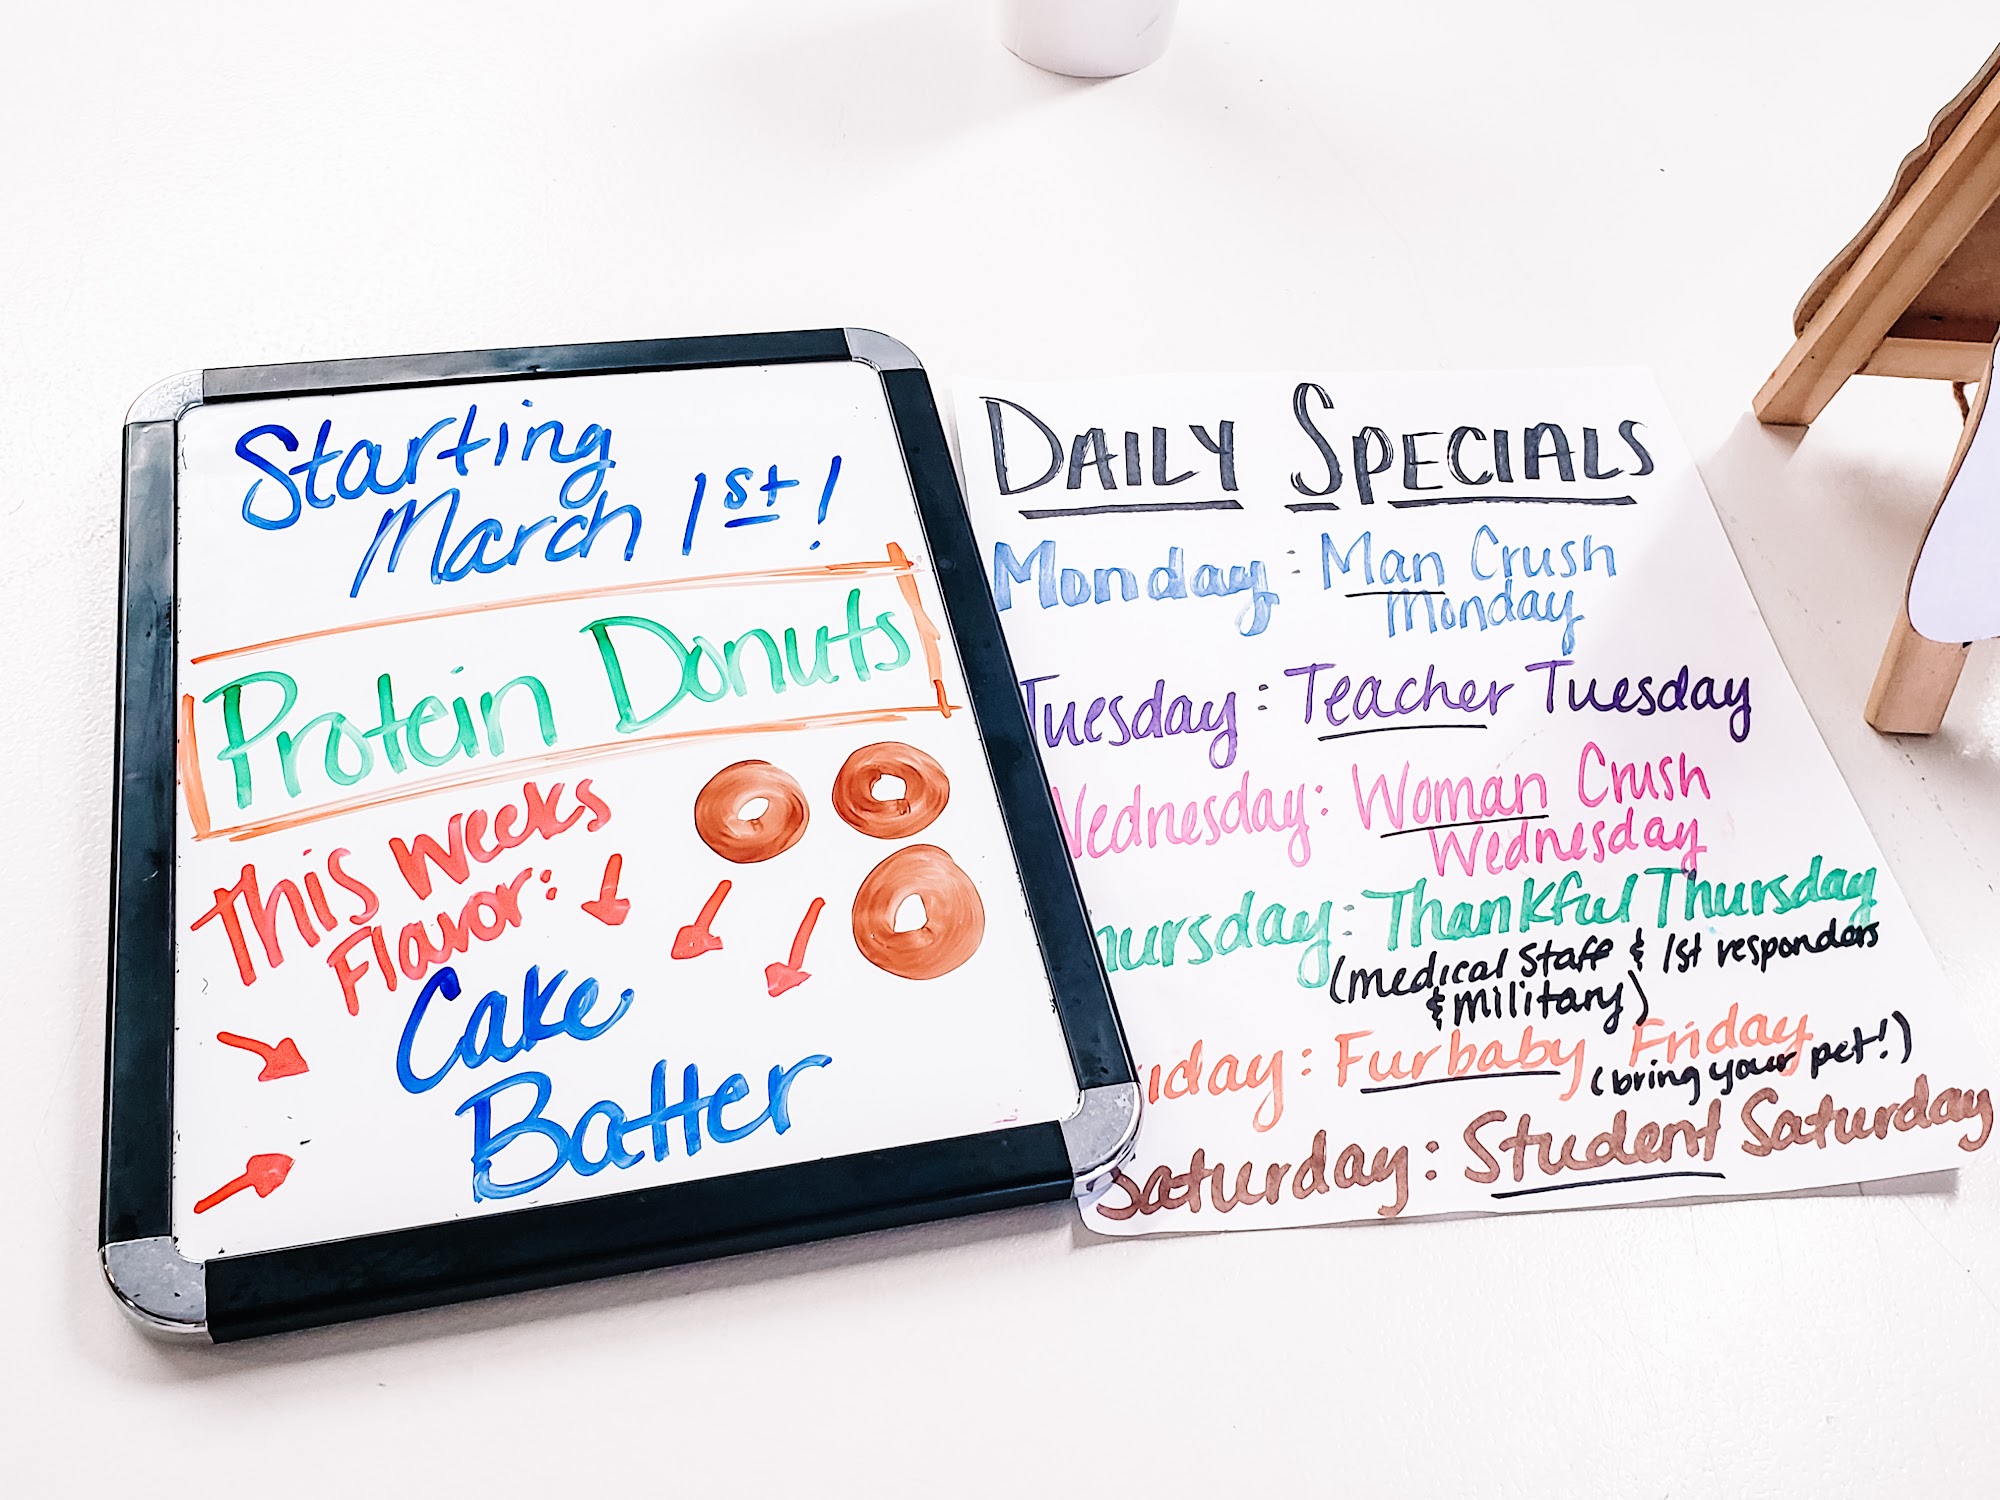 Starting
March 1st!
Protein Donuts
This weeks
Flavor:
Cake
Batter
DAILY SPECIALS
Monday: Man Crush
Monday
Tuesday: Teacher Tuesday
Wednesday: Woman Crush
Wednesday
hursday: Thankful Thursday
(medical staff & 1st responders
& military)
iday: Furbaby Friday
(bring your pet!)
Saturday: Student Saturday